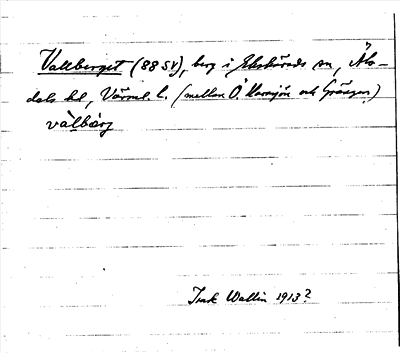 Vallberget (88 SV), berg i Ekshärads sn, Älv-
dals hd, Värml. l. (mellan Ö. Kornsjön och Grängen)
vàlbærj
Isak Wallin 1913?